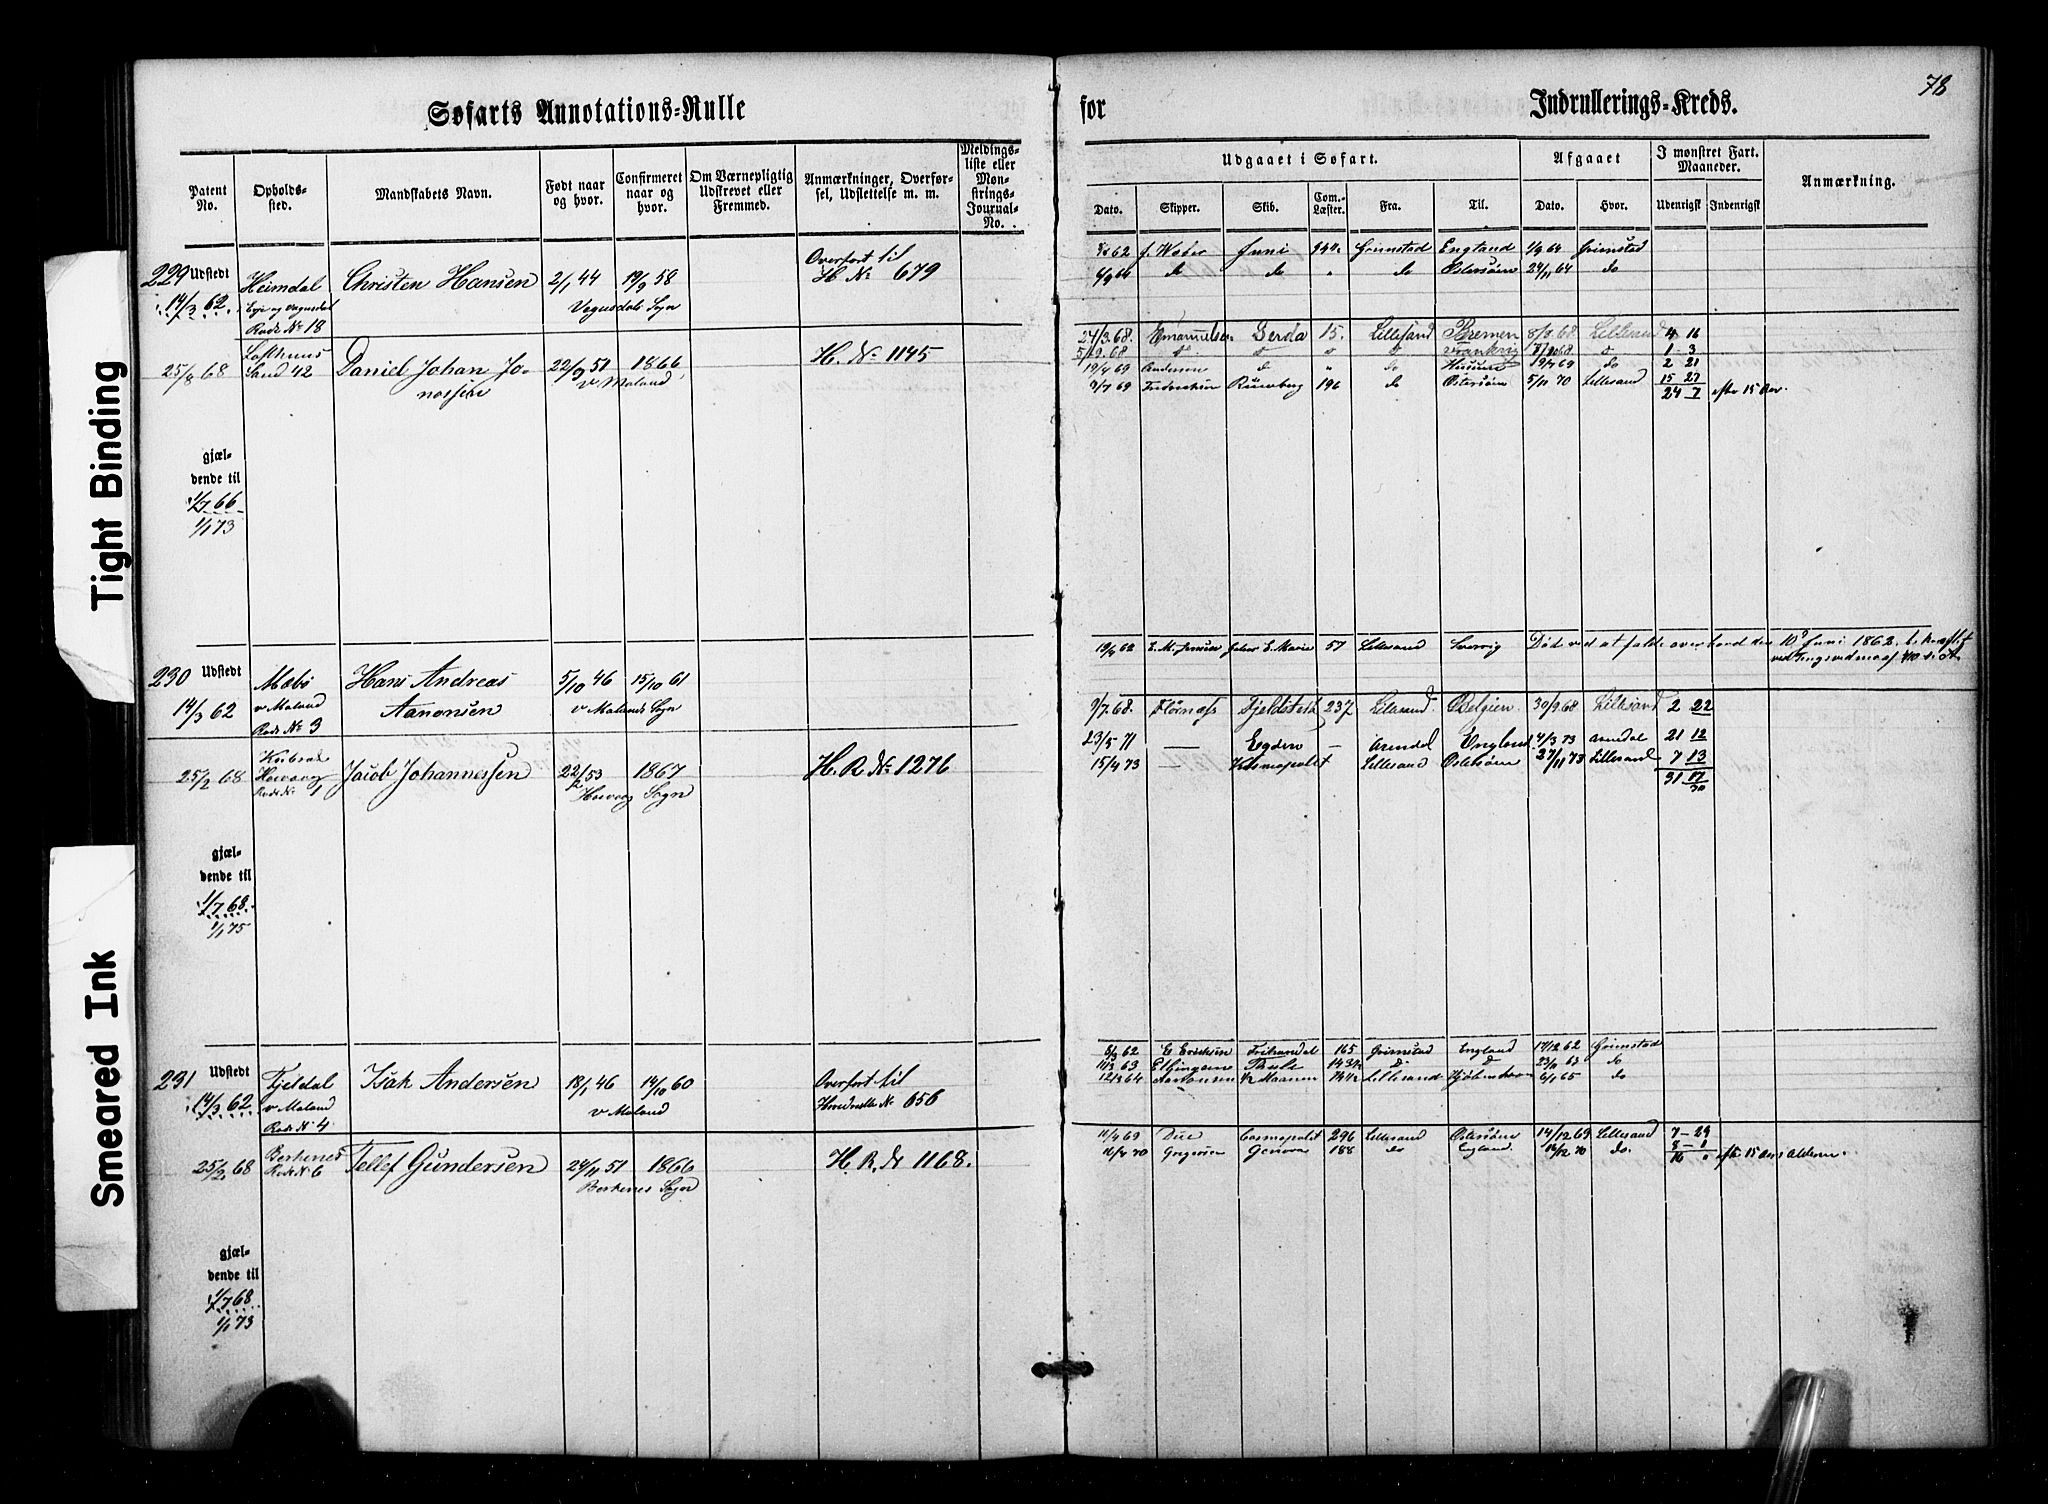 78
Søfarts Annotations-Rulle
for Indrullerings-Kreds.
Patent No.
Opholdssted.
Mandskabets Navn.
Født naar og hvor.
Confirmeret naar og hvor.
Om Værnepligtig Udskrevet eller Fremmed.
Anmærkninger, Overførsel, Udslettelse m. m.
Meldingsliste eller Mønstrings-Journal-No.
Udgaaet i Søfart.
Afgaaet
I mønstret Fart. Maaneder.
Anmærkning.
Dato. Skipper. Skib. Com.-Læster. Fra. Til. Dato. Hvor. Udenrigsk Indenrigsk
229 Udstedt 14/3 62
Heimdal
Rode No 18
Christen Hansen 2/1 44 19/9 58
Vegusdals Sogn
Overført til
H No 679
62 J. Weber Juni Grimstad England 1/9 64 Grimstad
do do " do Østersøen 24/11 64 do
25/8 68
Sand 42
Daniel Johan Jo-
nossen
22/9 51 1866
V Moland
H. No 1145
24/3 68. Emanuelsen Gerda 15. Lillesand Bremen 8/9 68 Lillesand 4 16
5/9 68 Frankrig 1 - 3
19/4 69 Andersen do " do 19/7 69 do 2 21
9/7 69 196 do Østersøen 5/11 70 Lillesand 15 27
24 7 efter 15 Aar.
gjæl-
dende til
1/7 66
1/1 73
230 Udstedt
14/3 62
Mæbø
v Moland
Rode No 3
Hans Andreas
Aanonsen
5/10 46 15/10 61
V Molands Sogn
19/4 62 57 Lillesand Død ved at falde overbord den 10 Juni 1862
25/2 68
Høivaag
Rode No 1
Jacob Johannessen
22/2 53 1867
Høivaag Sogn
H. R. No 1276
9/7 68. Fjeldstedt 237 Lillesand Belgien 30/9 68 Lillesand 2 22
23/5 71 — Egden — Arendal England 4/3 73 Arendal 21 12
15/4 73 — Kosmopolit Lillesand Østersøen 27/11 73 Lillesand 7 13
31 17
30
gjæl-
dende til
1/7 68.
1/1 75
231 Udstedt
14/3 62
Fjeldal
v Moland
Rode No 4
Isak Andersen 18/1 46 14/10 60
V Moland
Overført til
Hovedrulle No 656
8/3 62 E Eriksen 165 Grimstad England 17/12 62 Grimstad
11/3 63 Thule 143½ do
12/3 64 Aanonsen 144½ Lillesand Kjøbenhavn 6/1 65 do
25/2 68
Berkenes
Rode No 6
Tellef Gundersen 24/11 51 1866
Berkenes Sogn
H. R. No 1168.
11/4 69 Due Cosmopolit 296 Lillesand Østersøen 14/12 69 Lillesand 7 - 29
70 Gregersen Genova 188 do England 70 do. 8 - 1
16 0 efter 15 Aars Alderen.
gjæl-
dende til
1/7 68
1/1 73
Tight Binding
Smeared Ink